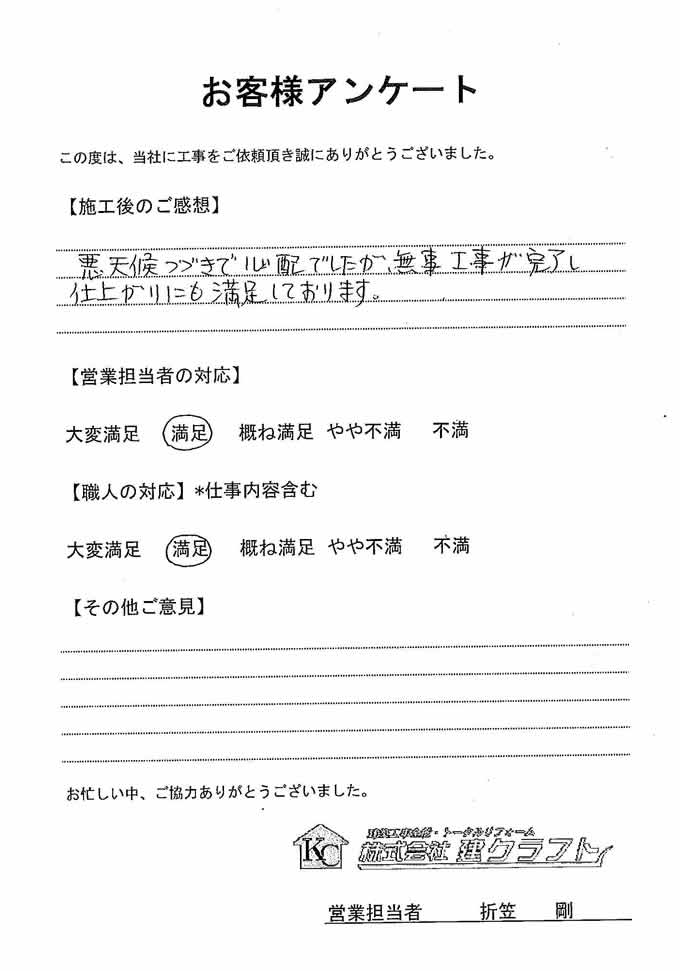 お客様アンケート
この度は、当社に工事をご依頼頂き誠にありがとうございました。
【施工後のご感想】
悪天候つづきで心配でしたが、無事工事が完了し
仕上がりにも満足しております。
【営業担当者の対応】
大変満足 満足 概ね満足 やや不満 不満
【職人の対応】*仕事内容含む
大変満足 満足 概ね満足 やや不満 不満
【その他ご意見】
お忙しい中、ご協力ありがとうございました。
・トータルリフォーム
KC 株式会社 建クラフト
営業担当者 折笠 剛